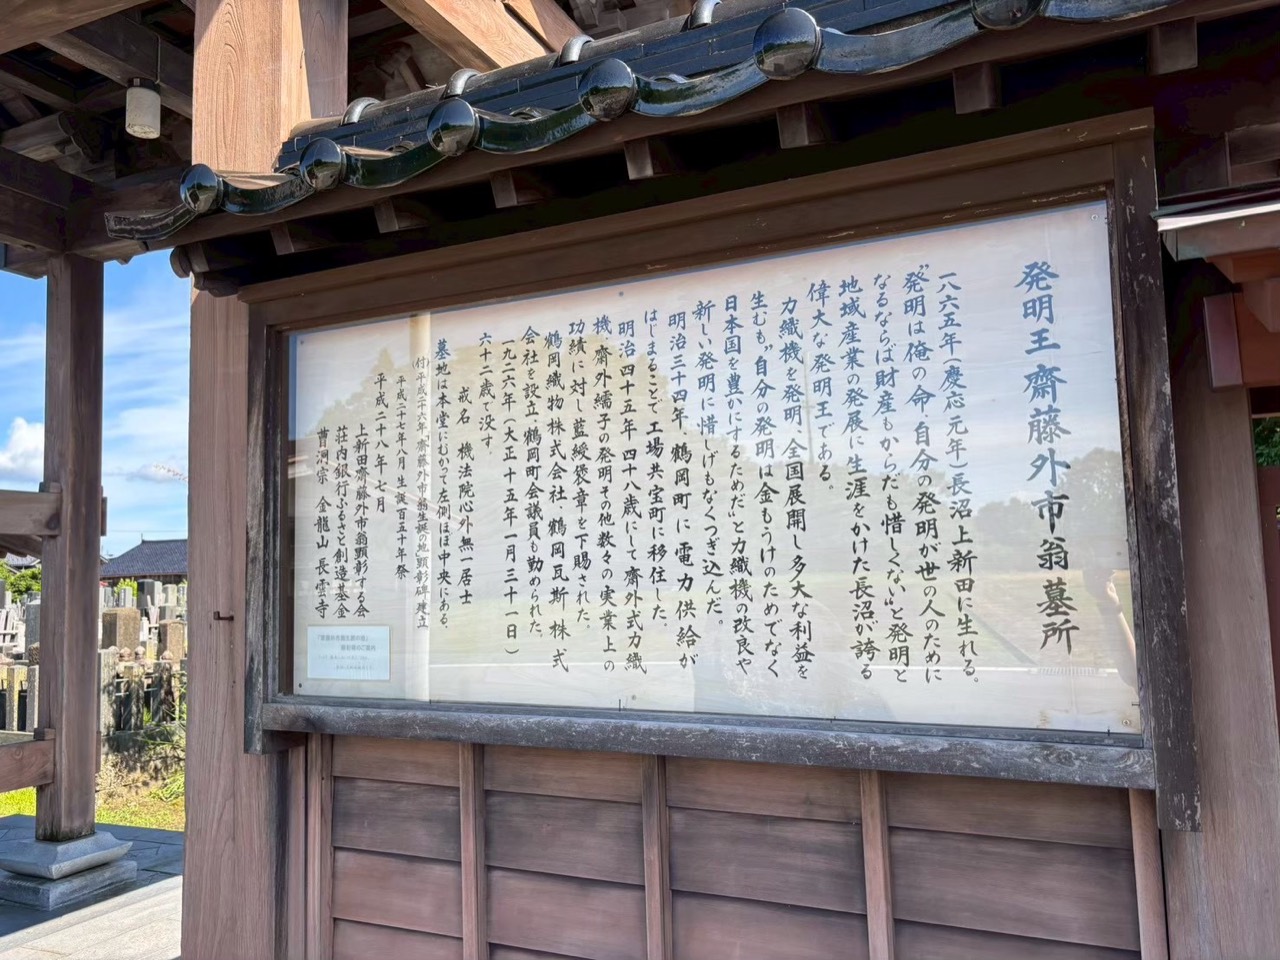 発明王 齋藤外市翁墓所
一八六五年(慶応元年)長沼上新田に生れる。
“発明は俺の命・自分の発明が世の人のために
なるならば財産もからだも惜しくない”と発明と
地域産業の発展に生涯をかけた長沼が誇る
偉大な発明王である。
力織機を発明、全国展開し多大な利益を
生むも、“自分の発明は金もうけのためでなく
日本国を豊かにするためだ”と力織機の改良や
新しい発明に惜しげもなくつぎ込んだ。
明治三十四年、鶴岡町に電力供給が
はじまることで工場共宝町に移住した。
明治四十五年四十八歳にして齋外式力織
機、齋外繻子の発明その他数々の実業上の
功績に対し藍綬褒章を下賜された。
鶴岡織物株式会社、鶴岡瓦斯株式
会社を設立、鶴岡町会議員も勤められた。
一九二六年(大正十五年一月三十一日)
六十二歳で没す。
戒名 機法院心外無一居士
墓地は本堂にむかって左側ほぼ中央にある。
(付)平成二十六年「齋藤外市翁生誕の地」顕彰碑建立
平成二十七年八月生誕百五十年祭
平成二十八年七月
上新田齋藤外市翁顕彰する会
荘内銀行ふるさと創造基金
曹洞宗 金龍山 長雲寺